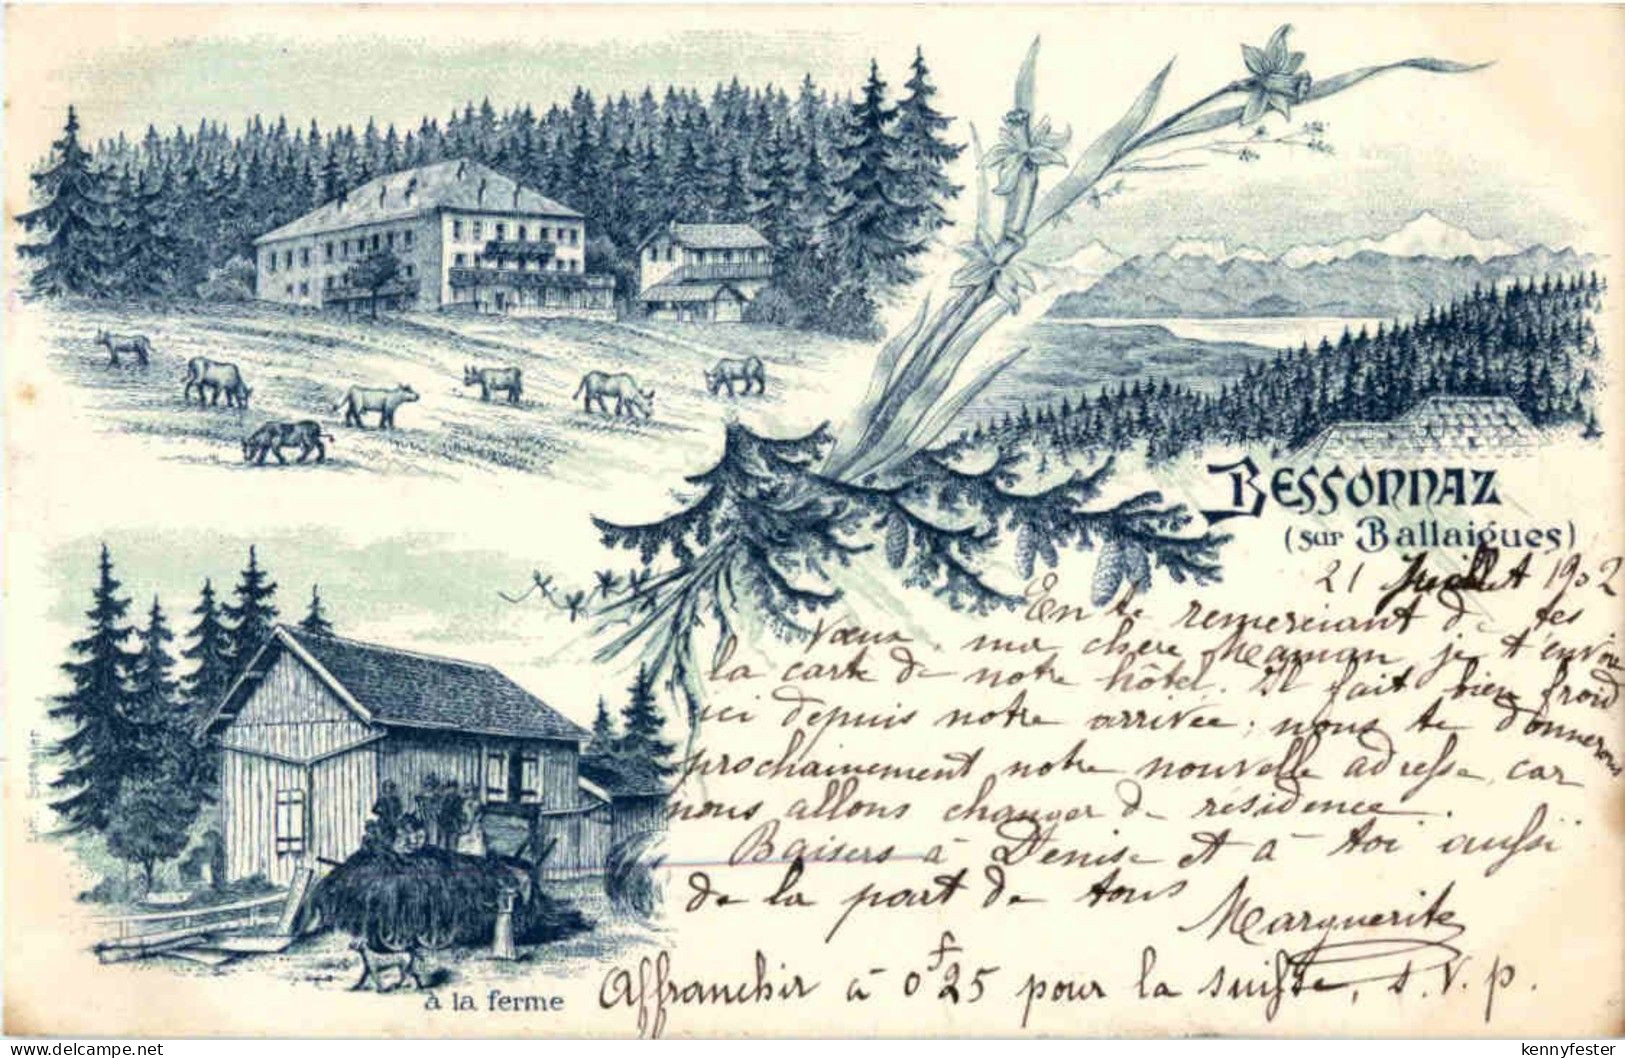 BESSONNAZ
(sur Ballaigues)
21 Juillet 1902
En te remerciant de tes
vœux, ma chère Maman, je t'envoie
la carte de notre hôtel. Il fait bien froid
ici depuis notre arrivée; nous te donnerons
prochainement notre nouvelle adresse, car
nous allons changer de résidence.
Baisers à Denise et à toi aussi
de la part de tous
Marguerite
Affranchir à 0f25 pour la suisse, s.v.p.
à la ferme
delcampe.net
kennyfester